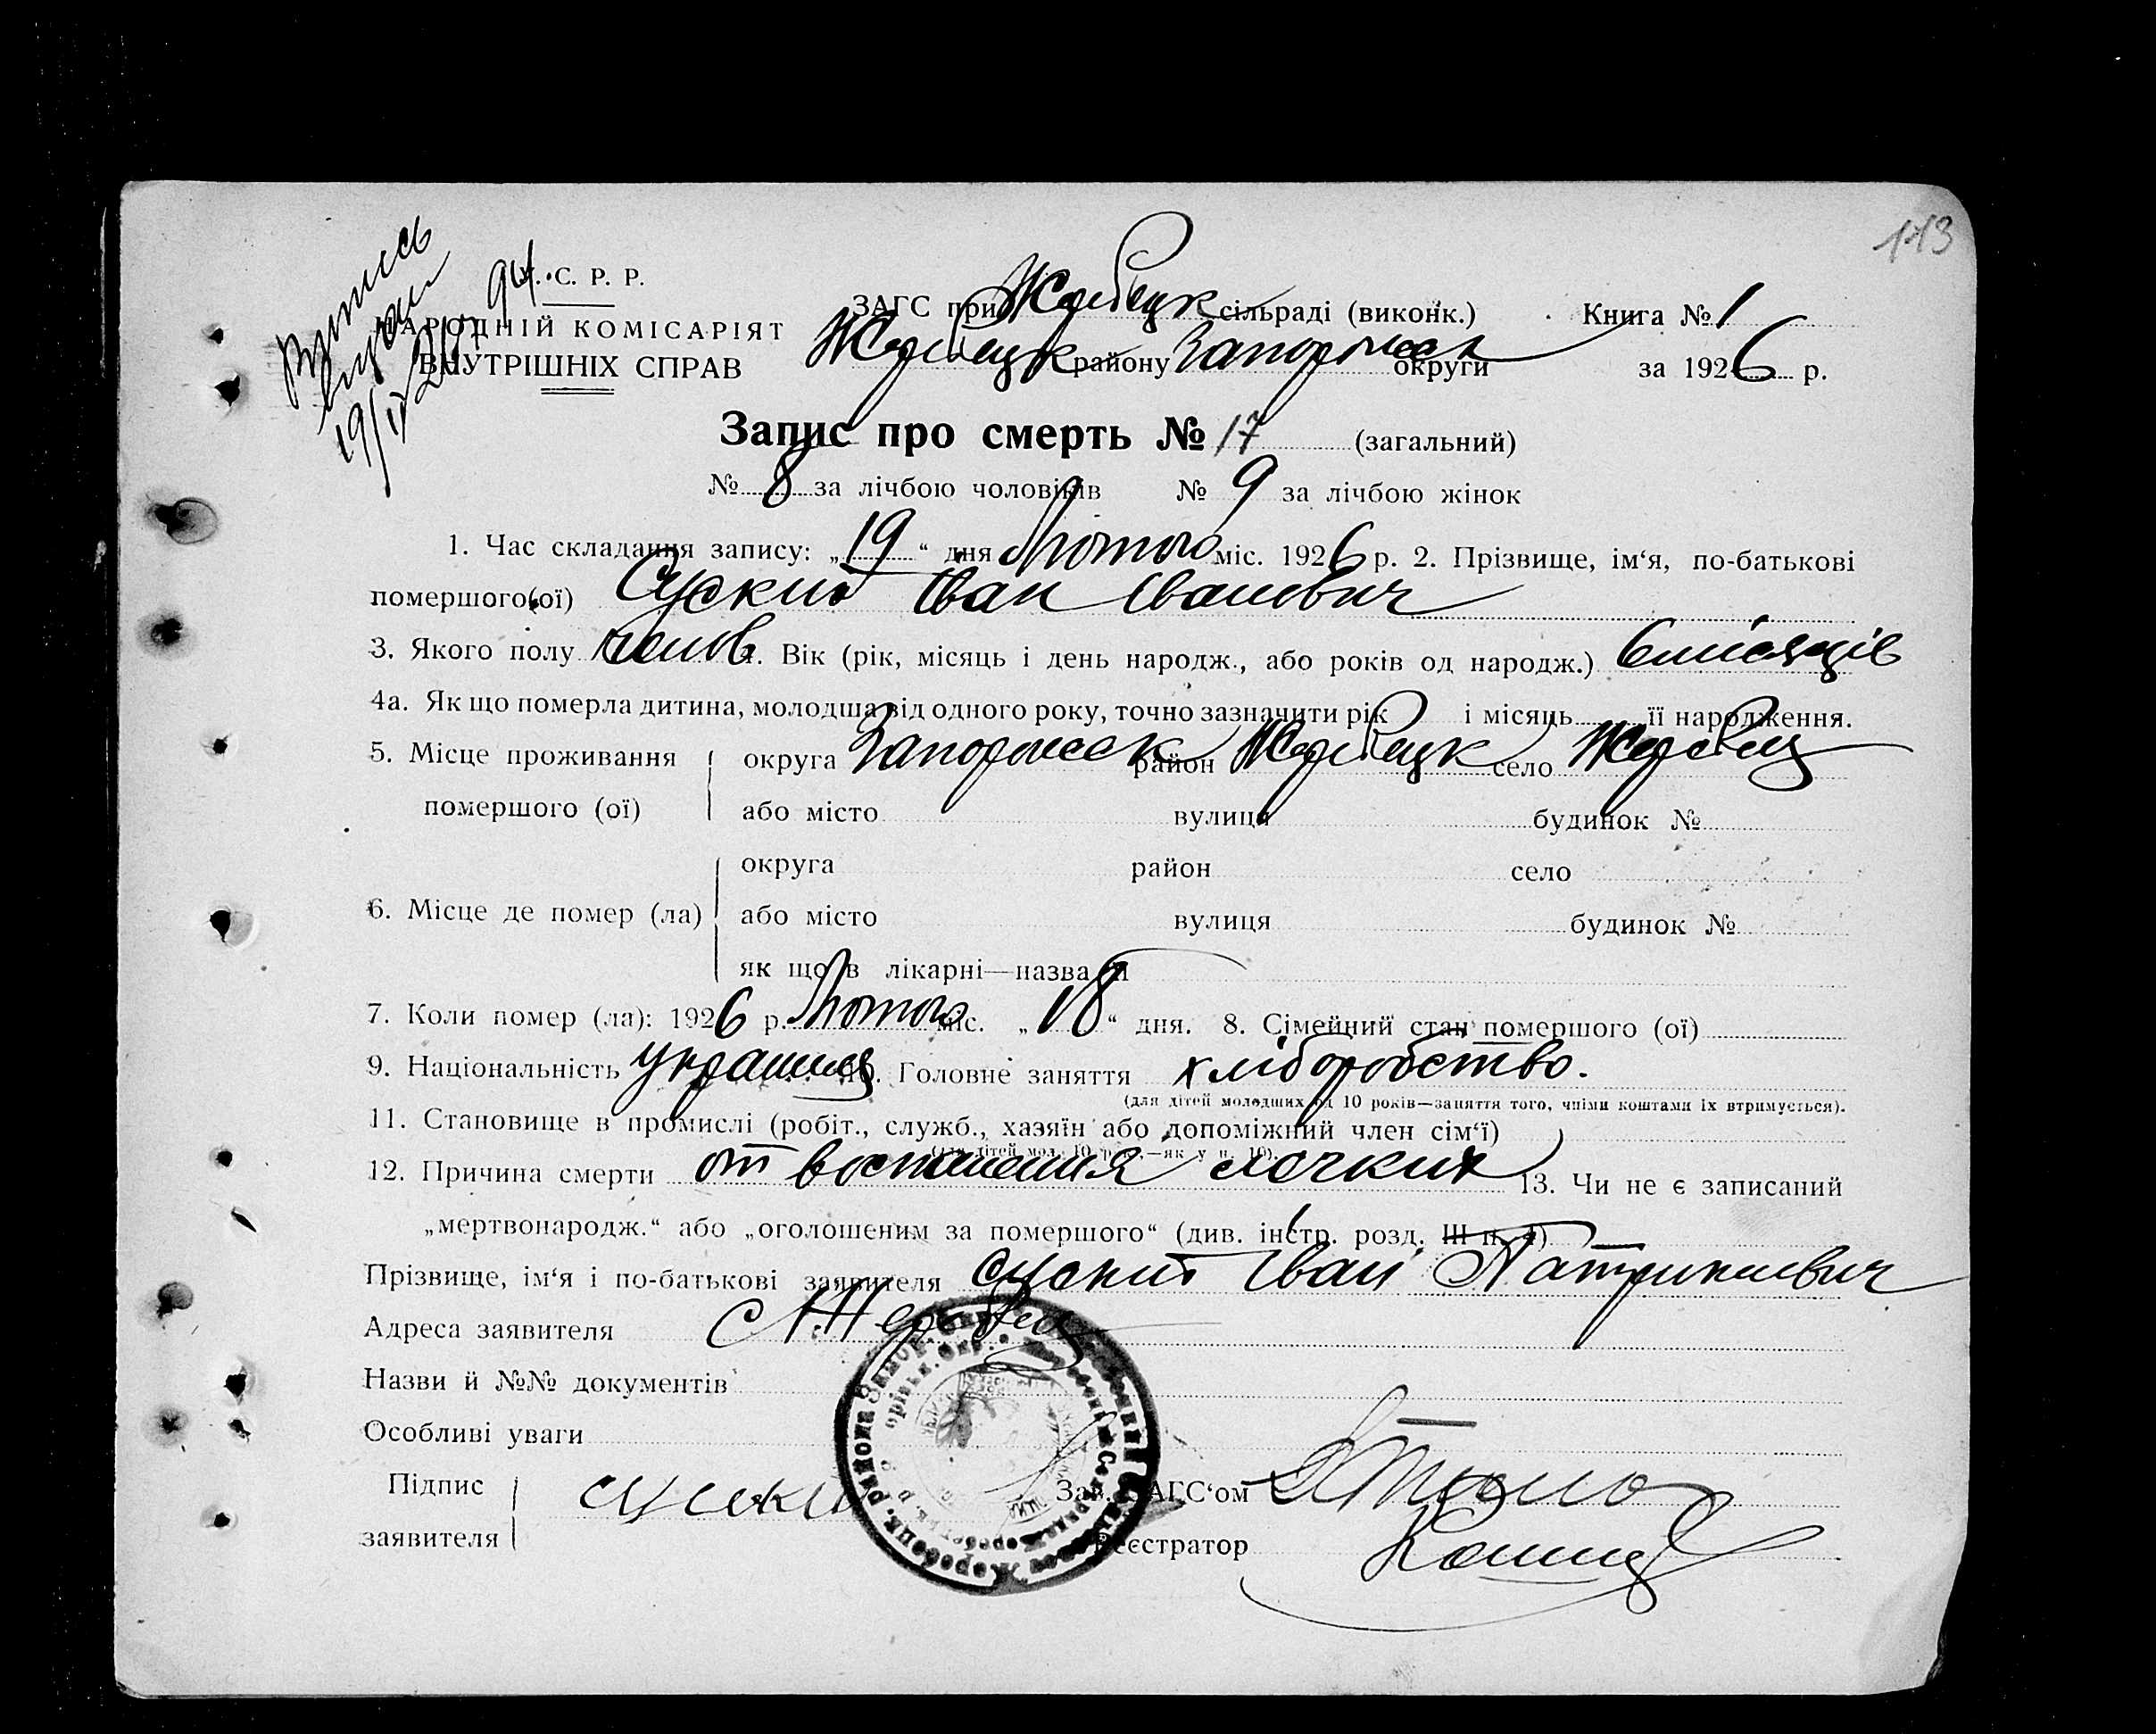 113
Випись
видан
У. С. Р. Р.
НАРОДНІЙ КОМІСАРІЯТ
ВНУТРІШНІХ СПРАВ
ЗАГС при Жеребецк сільраді (виконк.) Книга № 1
Жеребецк району Запорожск округи за 1926 р.
Запис про смерть № 17 (загальний)
№ 8 за лічбою чоловіків № 9 за лічбою жінок
1. Час складання запису: „19“ дня Лютого міс. 1926 р. 2. Прізвище, ім‘я, по-батькові
помершого(ої) Суский Іван Іванович
3. Якого полу челов 4. Вік (рік, місяць і день народж., або років од народж.) 6 місяців
4а. Як що померла дитина, молодша від одного року, точно зазначити рік і місяць її народження.
5. Місце проживання помершого (ої) округа Запорожск район Жеребецк село Жеребец
або місто вулиця будинок №
6. Місце де помер (ла) округа район село
або місто вулиця будинок №
як що в лікарні—назва її
7. Коли помер (ла): 1926 р. Лютого міс. „18“ дня. 8. Сімейний стан помершого (ої)
9. Національність украинец 10. Головне заняття хліборобство.
(для дітей молодших од 10 років—заняття того, чиїми коштами їх втримується).
11. Становище в промислі (робіт., служб., хазяїн або допоміжний член сім‘ї)
(для дітей мол. 10 р. —як у п. 10).
12. Причина смерти от воспаления лечких 13. Чи не є записаний
„мертвонародж.“ або „оголошеним за помершого“ (див. інстр. розд. III п. 4)
Прізвище, ім‘я і по-батькові заявителя Суский Іван Патрикиевич
Адреса заявителя с Жеребец
Назви й №№ документів
Особливі уваги
Підпис заявителя Суский Зав. ЗАГС‘ом
Реєстратор